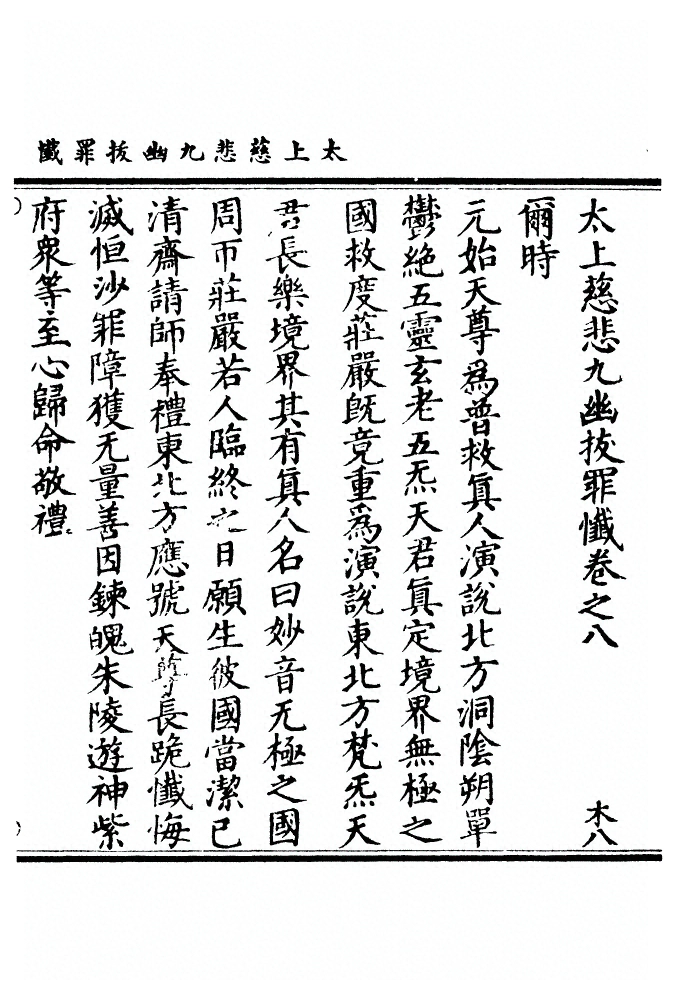 太上慈悲九幽拔罪懺
太上慈悲九幽拔罪懺卷之八 木八
爾時
元始天尊爲普救真人演說北方洞陰朔單
鬱絶五靈玄老五炁天君真定境界無極之
國救度莊嚴既竟重爲演說東北方梵炁天
君長樂境界其有真人名曰妙音无極之國
周帀莊嚴若人臨終之日願生彼國當潔已
清齋請師奉禮東北方應號天尊長跪懺悔
滅恒沙罪障獲无量善因鍊魄朱陵遊神紫
府衆等至心歸命敬禮